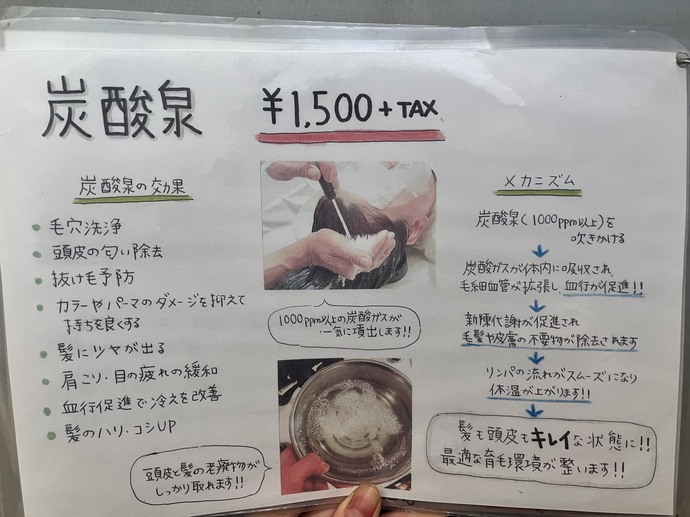 炭酸泉
¥1,500+TAX
炭酸泉の効果
毛穴洗浄
頭皮の匂い除去
抜け毛予防
カラーやパーマのダメージを抑えて
持ちを良くする
髪にツヤが出る
肩こり・目の疲れの緩和
血行促進で冷えを改善
髪のハリ・コシUP
1000ppm以上の炭酸ガスが
一気に噴出します!!
頭皮と髪の老廃物が
しっかり取れます!!
メカニズム
炭酸泉(1000ppm以上)を
吹きかける
炭酸ガスが体内に吸収され、
毛細血管が拡張し、血行が促進!!
新陳代謝が促進され
毛髪や皮膚の不要物が除去されます
リンパの流れがスムーズになり
体温が上がります!!
髪も頭皮もキレイな状態に!!
最適な育毛環境が整います!!